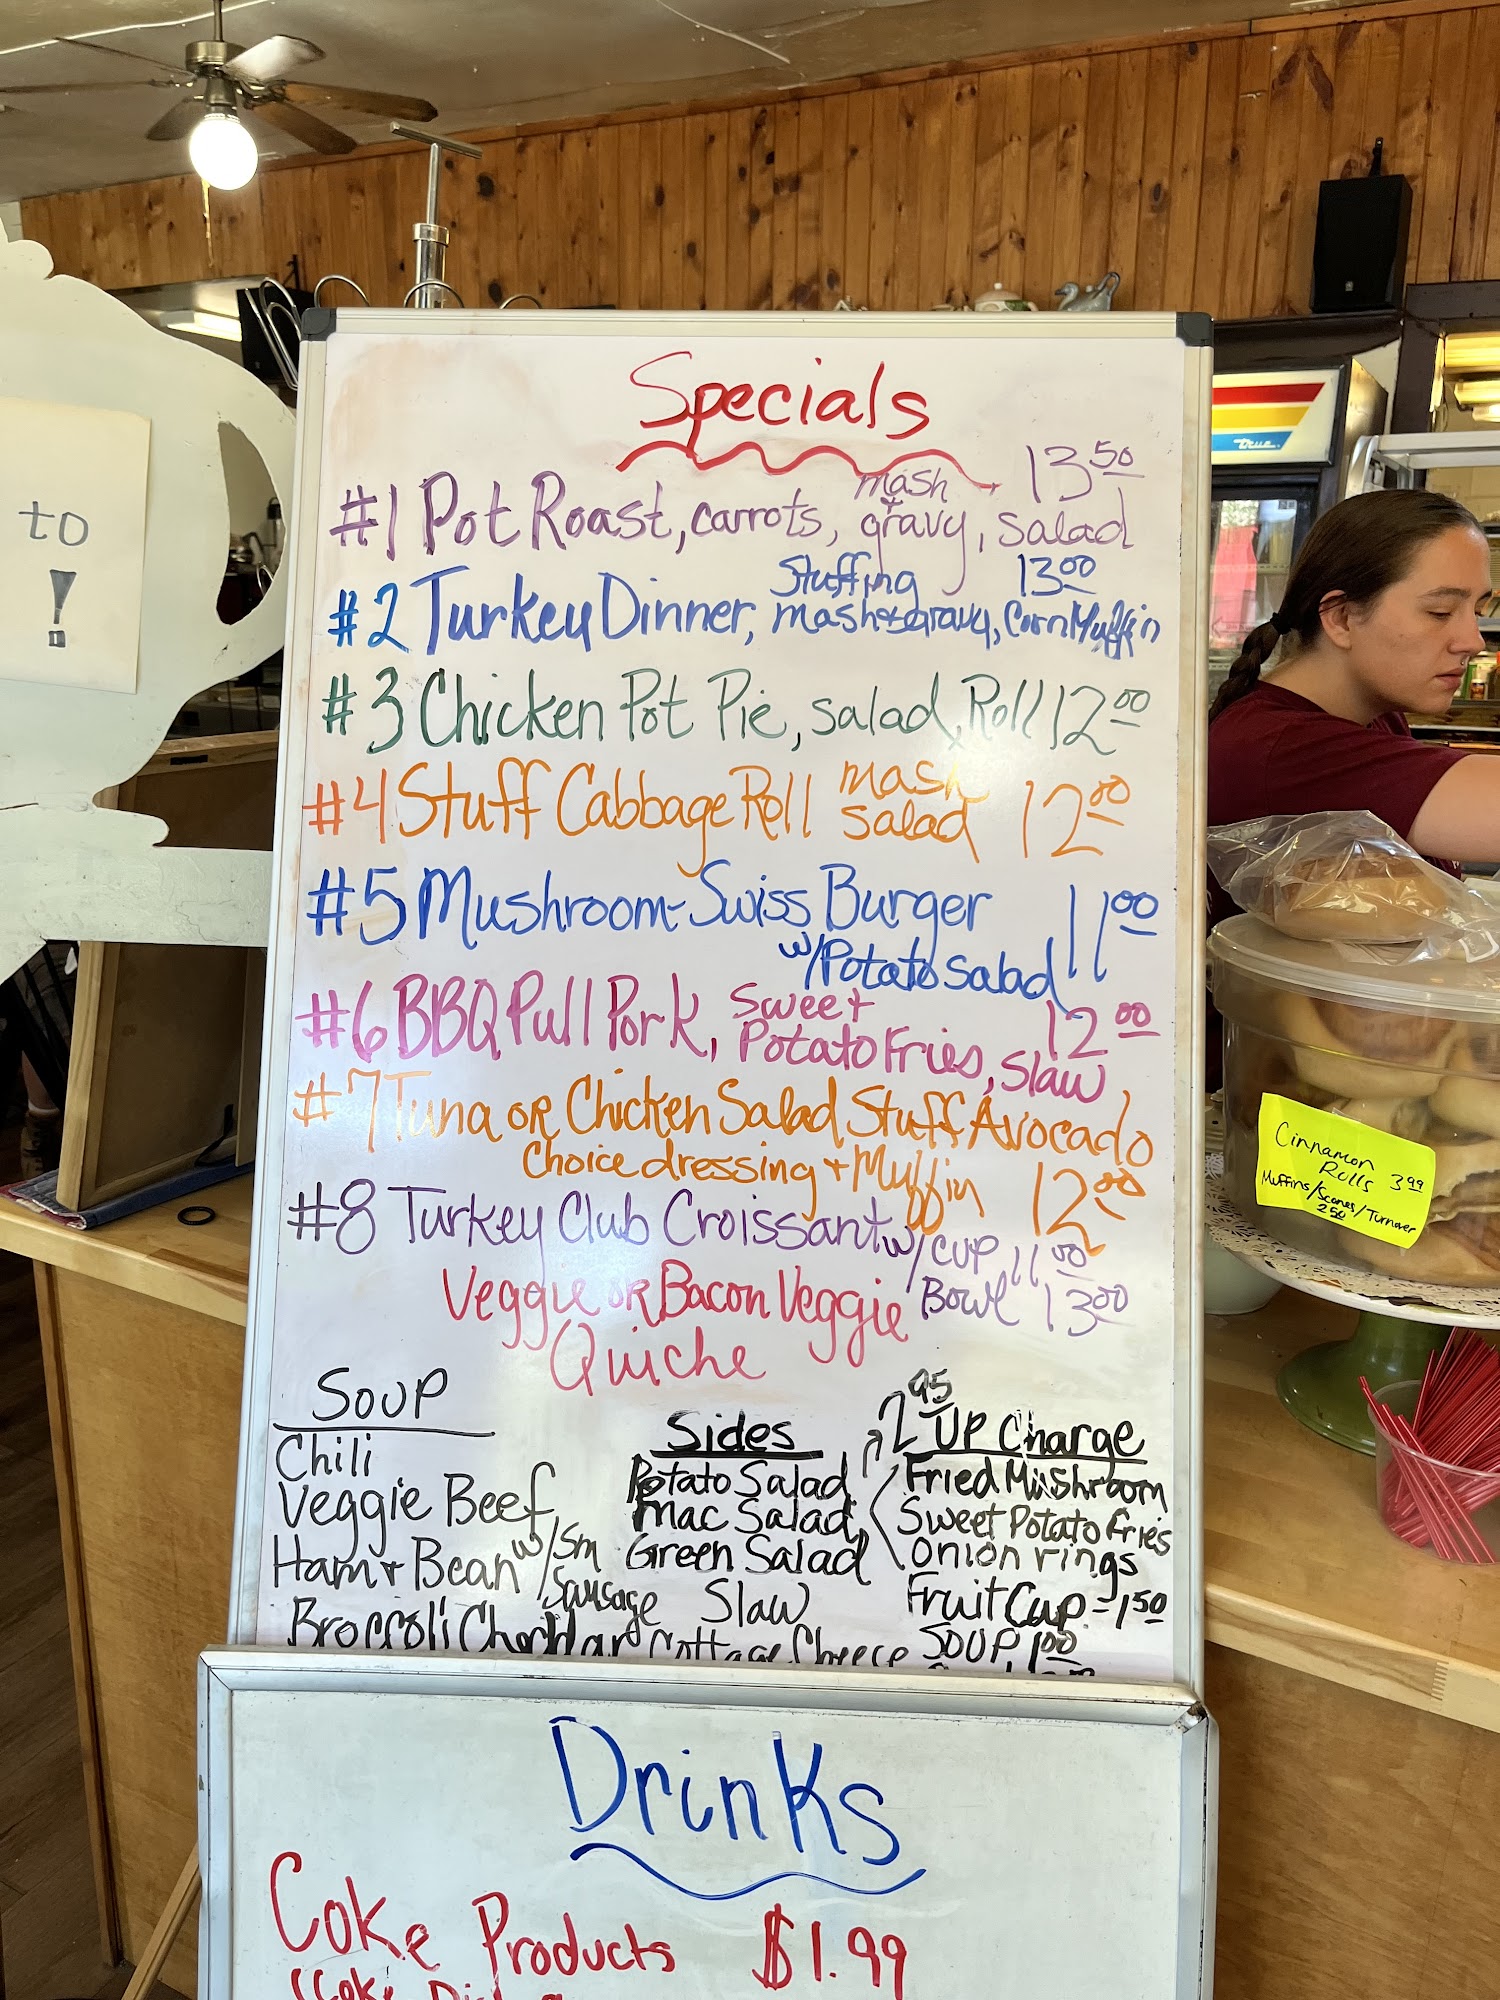 to
!
true
Specials
#1 Pot Roast, carrots, mash + gravy, salad 13.50
#2 Turkey Dinner, Stuffing mash + gravy, Corn Muffin 13.00
#3 Chicken Pot Pie, salad, Roll 12.00
#4 Stuff Cabbage Roll mash salad 12.00
#5 Mushroom-Swiss Burger 11.00
w/Potato Salad
#6 BBQ Pull Pork, Sweet Potato Fries, Slaw 12.00
#7 Tuna or Chicken Salad Stuff Avocado
Choice dressing + Muffin 12.00
#8 Turkey Club Croissant w/ cup 11.00
Bowl 13.00
Veggie or Bacon Veggie
Quiche
Soup
Chili
Veggie Beef
Ham + Bean w/Sm Sausage
Broccoli Cheddar
Sides
Potato Salad
Mac Salad
Green Salad
Slaw
Cottage Cheese
2.95 Up Charge
Fried Mushroom
Sweet Potato Fries
Onion rings
Fruit Cup - 1.50
Soup 1.00
Cinnamon
Rolls 3.99
Muffins/Scones/Turnover
2.50
Drinks
Coke Products $1.99